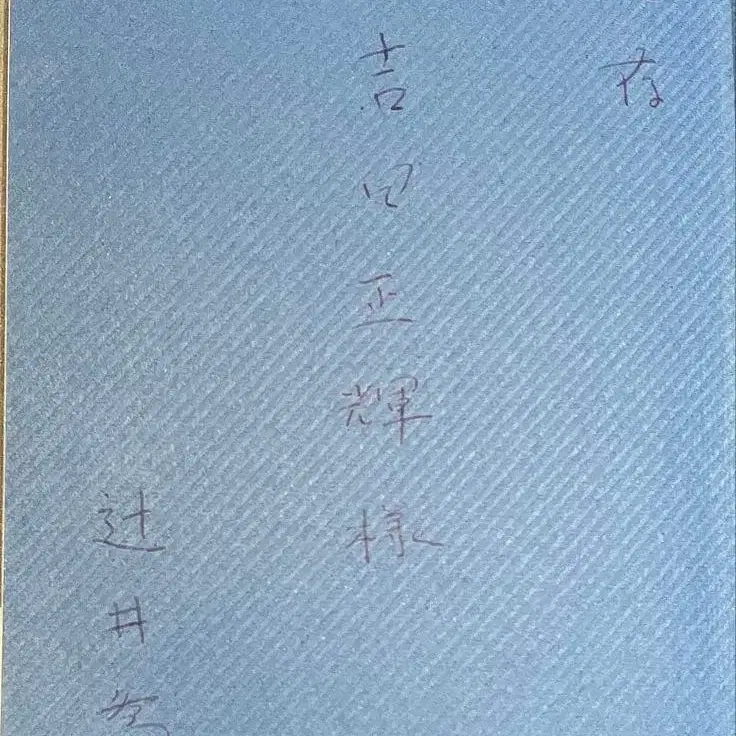 存
吉田正輝様
辻井喬